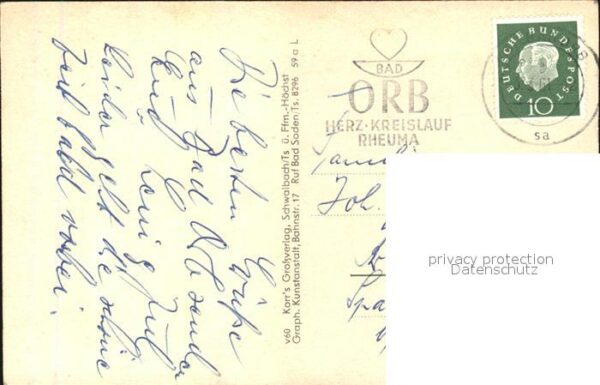 Die besten Grüße
aus Bad Orb sendet
Euch
Leider geht die schöne
Zeit bald vorbei.
v60 Karr's Großverlag, Schwalbach/Ts ü. Ffm.-Höchst
Graph. Kunstanstalt, Bahnstr. 17 Ruf Bad Soden/Ts. 8296 59 a L
BAD
ORB
HERZ·KREISLAUF
RHEUMA
DEUTSCHE BUNDESPOST
10
sa
Famil
Joh.
privacy protection
Datenschutz